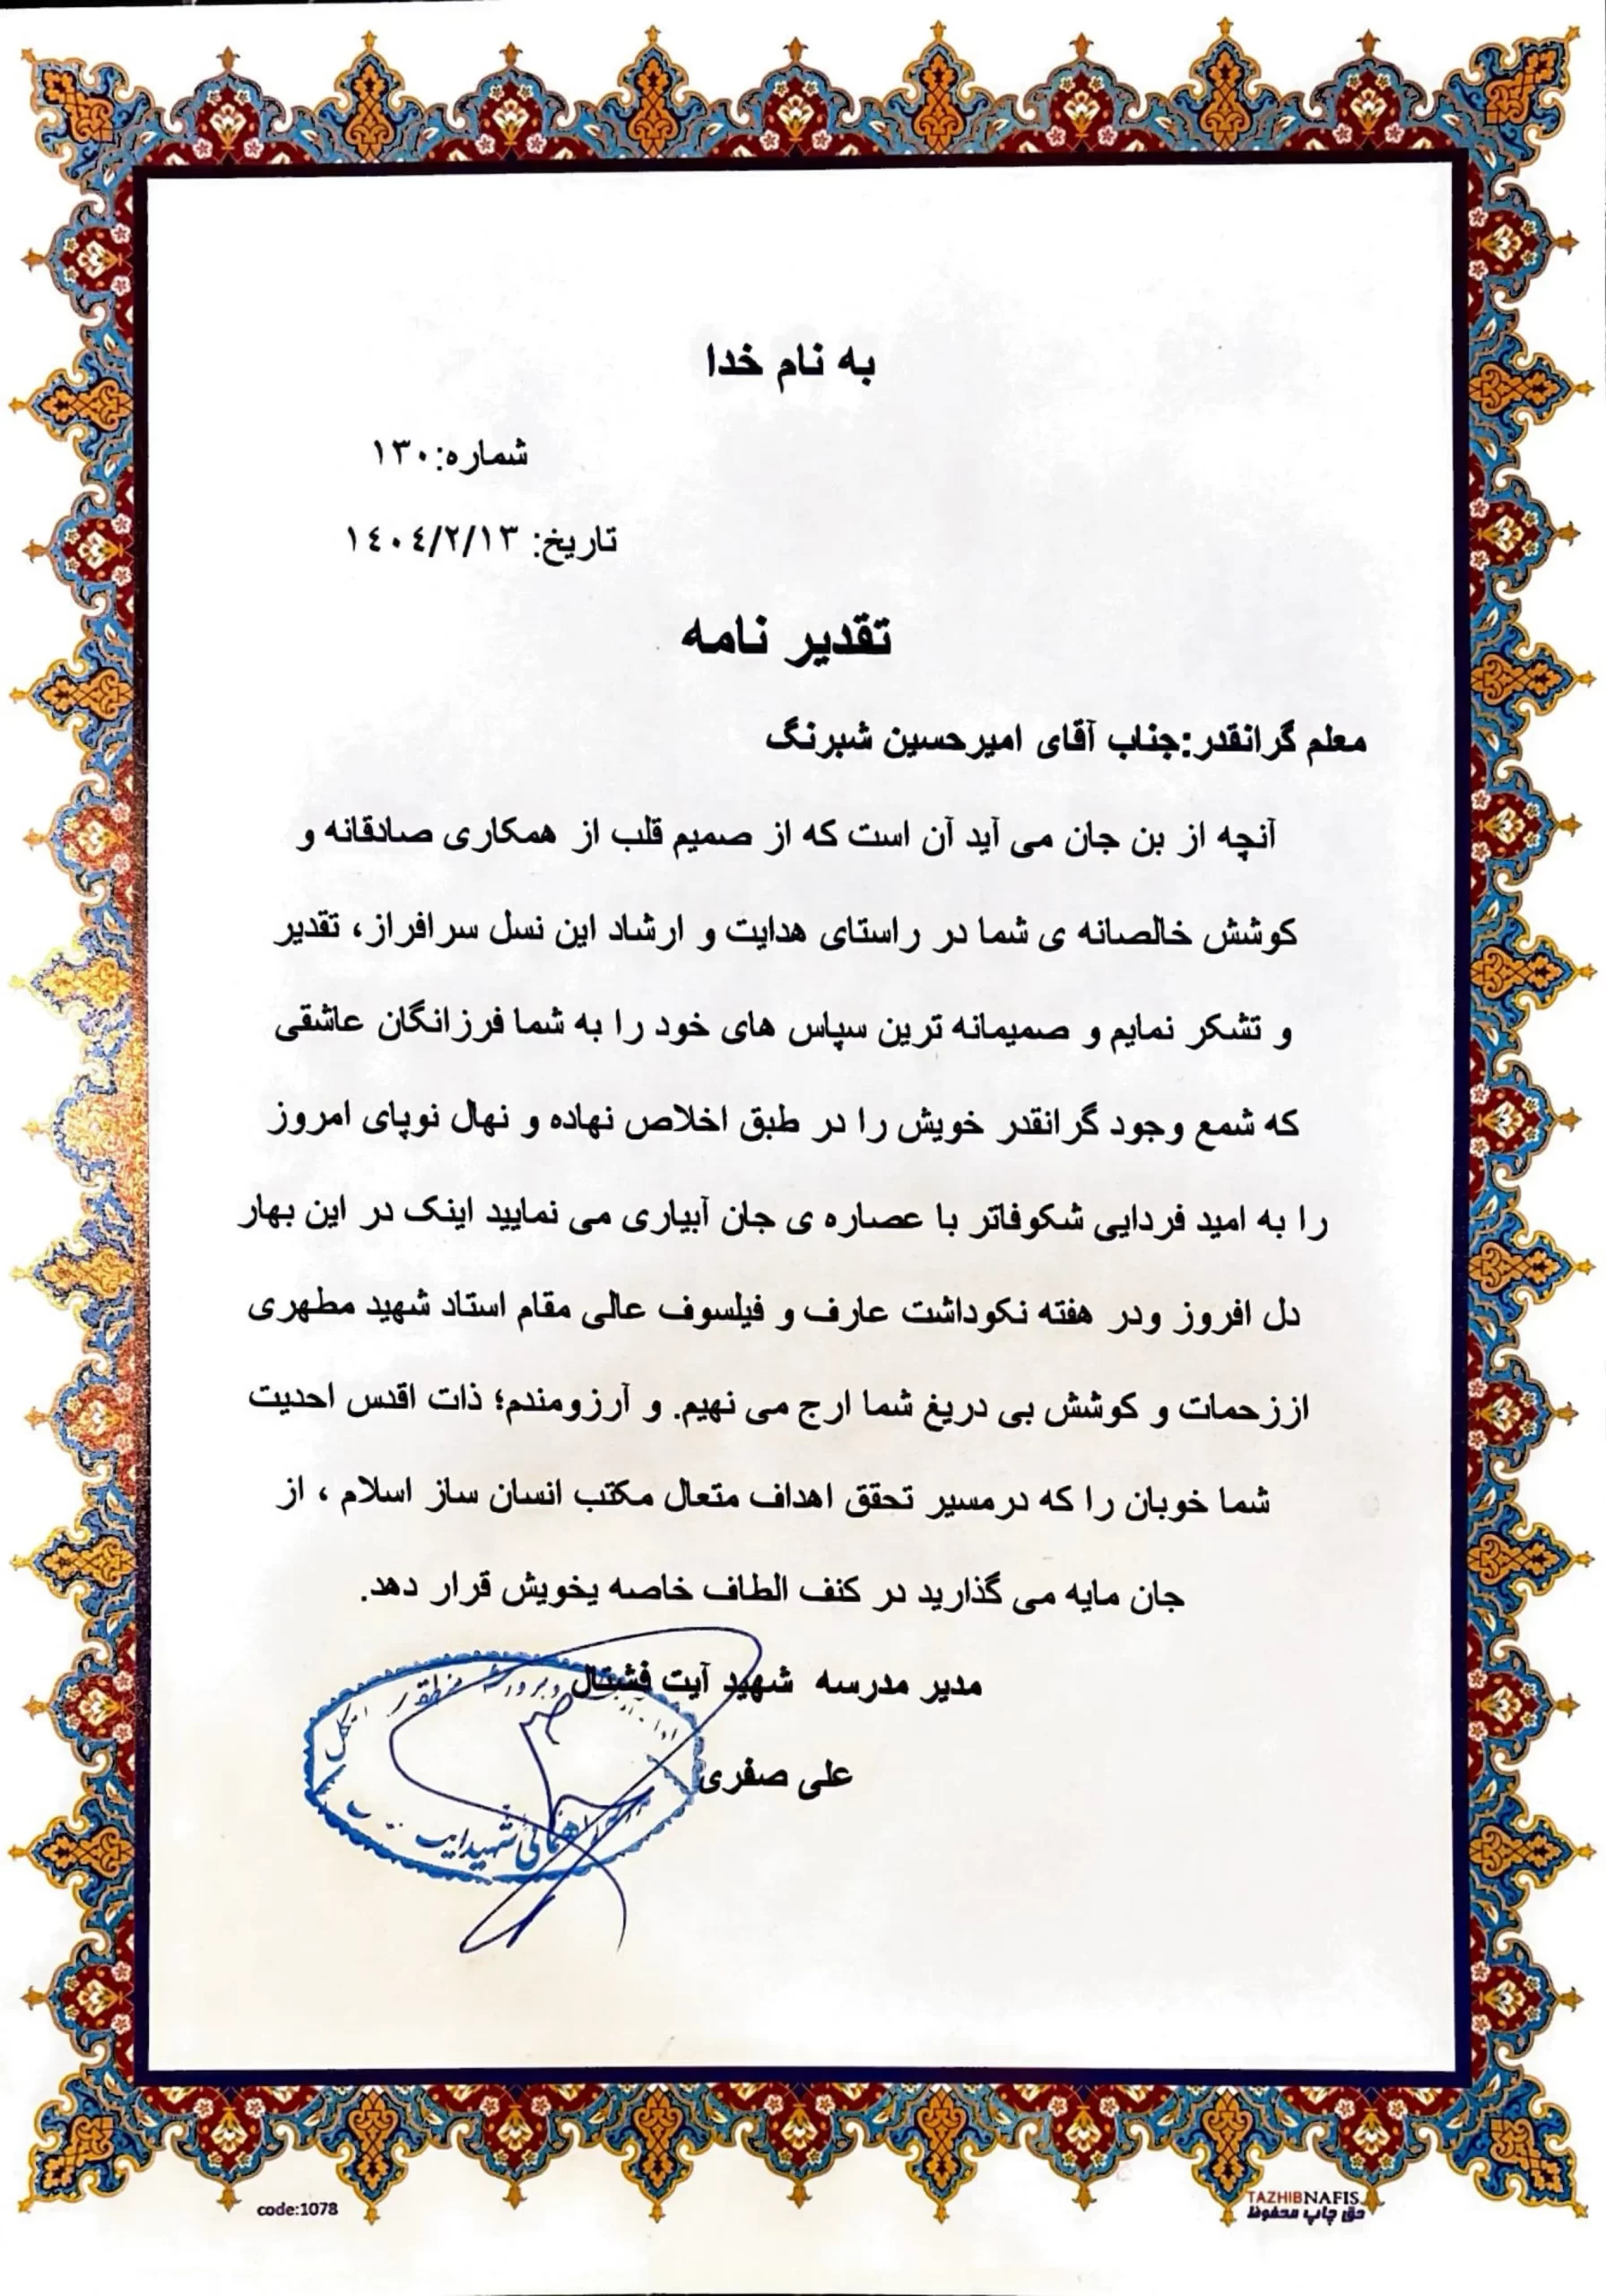 به نام خدا
شماره:۱۳۰
تاریخ: ۱٤۰٤/۲/۱۳
تقدیر نامه
معلم گرانقدر:جناب آقای امیرحسین شبرنگ
آنچه از بن جان می آید آن است که از صمیم قلب از همکاری صادقانه و
کوشش خالصانه ی شما در راستای هدایت و ارشاد این نسل سرافراز، تقدیر
و تشکر نمایم و صمیمانه ترین سپاس های خود را به شما فرزانگان عاشقی
که شمع وجود گرانقدر خویش را در طبق اخلاص نهاده و نهال نوپای امروز
را به امید فردایی شکوفاتر با عصاره ی جان آبیاری می نمایید اینک در این بهار
دل افروز ودر هفته نکوداشت عارف و فیلسوف عالی مقام استاد شهید مطهری
اززحمات و کوشش بی دریغ شما ارج می نهیم. و آرزومندم؛ ذات اقدس احدیت
شما خوبان را که درمسیر تحقق اهداف متعال مکتب انسان ساز اسلام ، از
جان مایه می گذارید در کنف الطاف خاصه یخویش قرار دهد.
مدیر مدرسه شهید آیت فشتال
علی صفری
منطقه
راهنمائی شهید آیت
code:1078
TAZHIBNAFIS
حق چاپ محفوظ